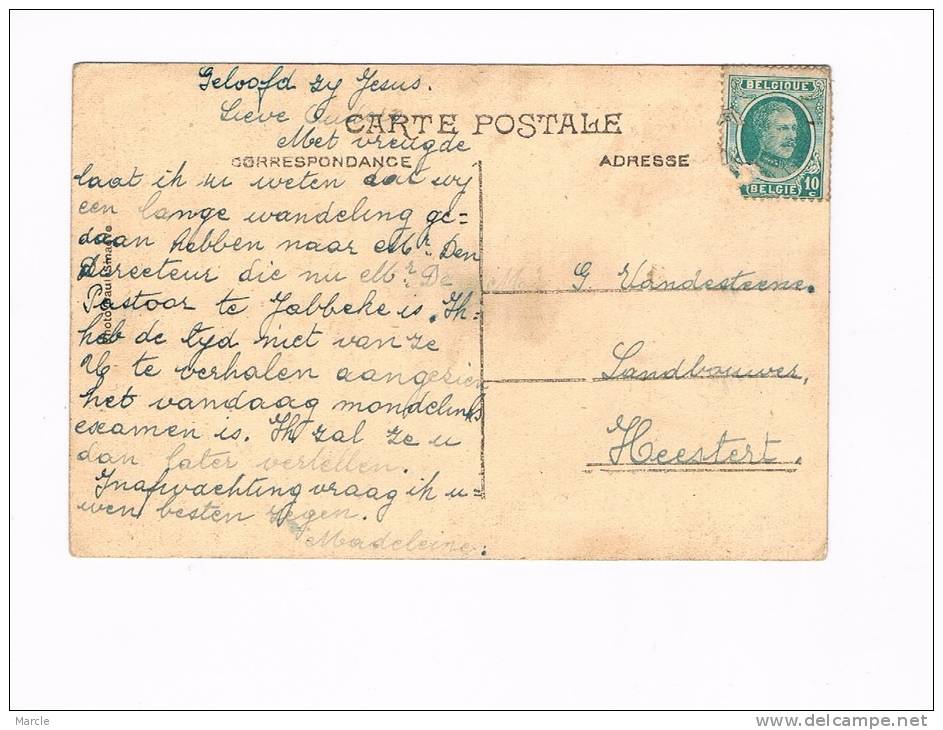 Geloofd zy Jesus.
Lieve Ouders
CARTE POSTALE
Met vreugde
CORRESPONDANCE
ADRESSE
BELGIQUE
BELGIË
10
c
laat ik u weten dat wij
een lange wandeling ge=
daan hebben naar Mr. Den
Directeur die nu Mr. De
Pastoor te Jabbeke is. Ik
heb de tyd niet van ze
U te verhalen aangezien
het vandaag mondelinks
examen is. Ik zal ze u
dan later vertellen.
Inafwachting vraag ik u=
wen besten zegen.
Madeleine.
G. Vandesteene.
Landbouwer,
Heestert.
Marcle
www.delcampe.net